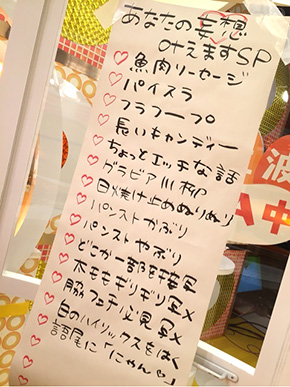 あなたの妄想
叶えますSP
♡魚肉ソーセージ
♡パイスラ
♡フラフープ
♡長いキャンディー
♡ちょっとエッチな話
♡グラビア川柳
♡日焼け止めぬりぬり
♡パンストかぶり
♡パンストやぶり
♡どこか一部を接写
♡太ももギリギリ写×
♡脇フェチ必見写×
♡白のハイソックスをはく
♡語尾に「にゃん♡」
波
中